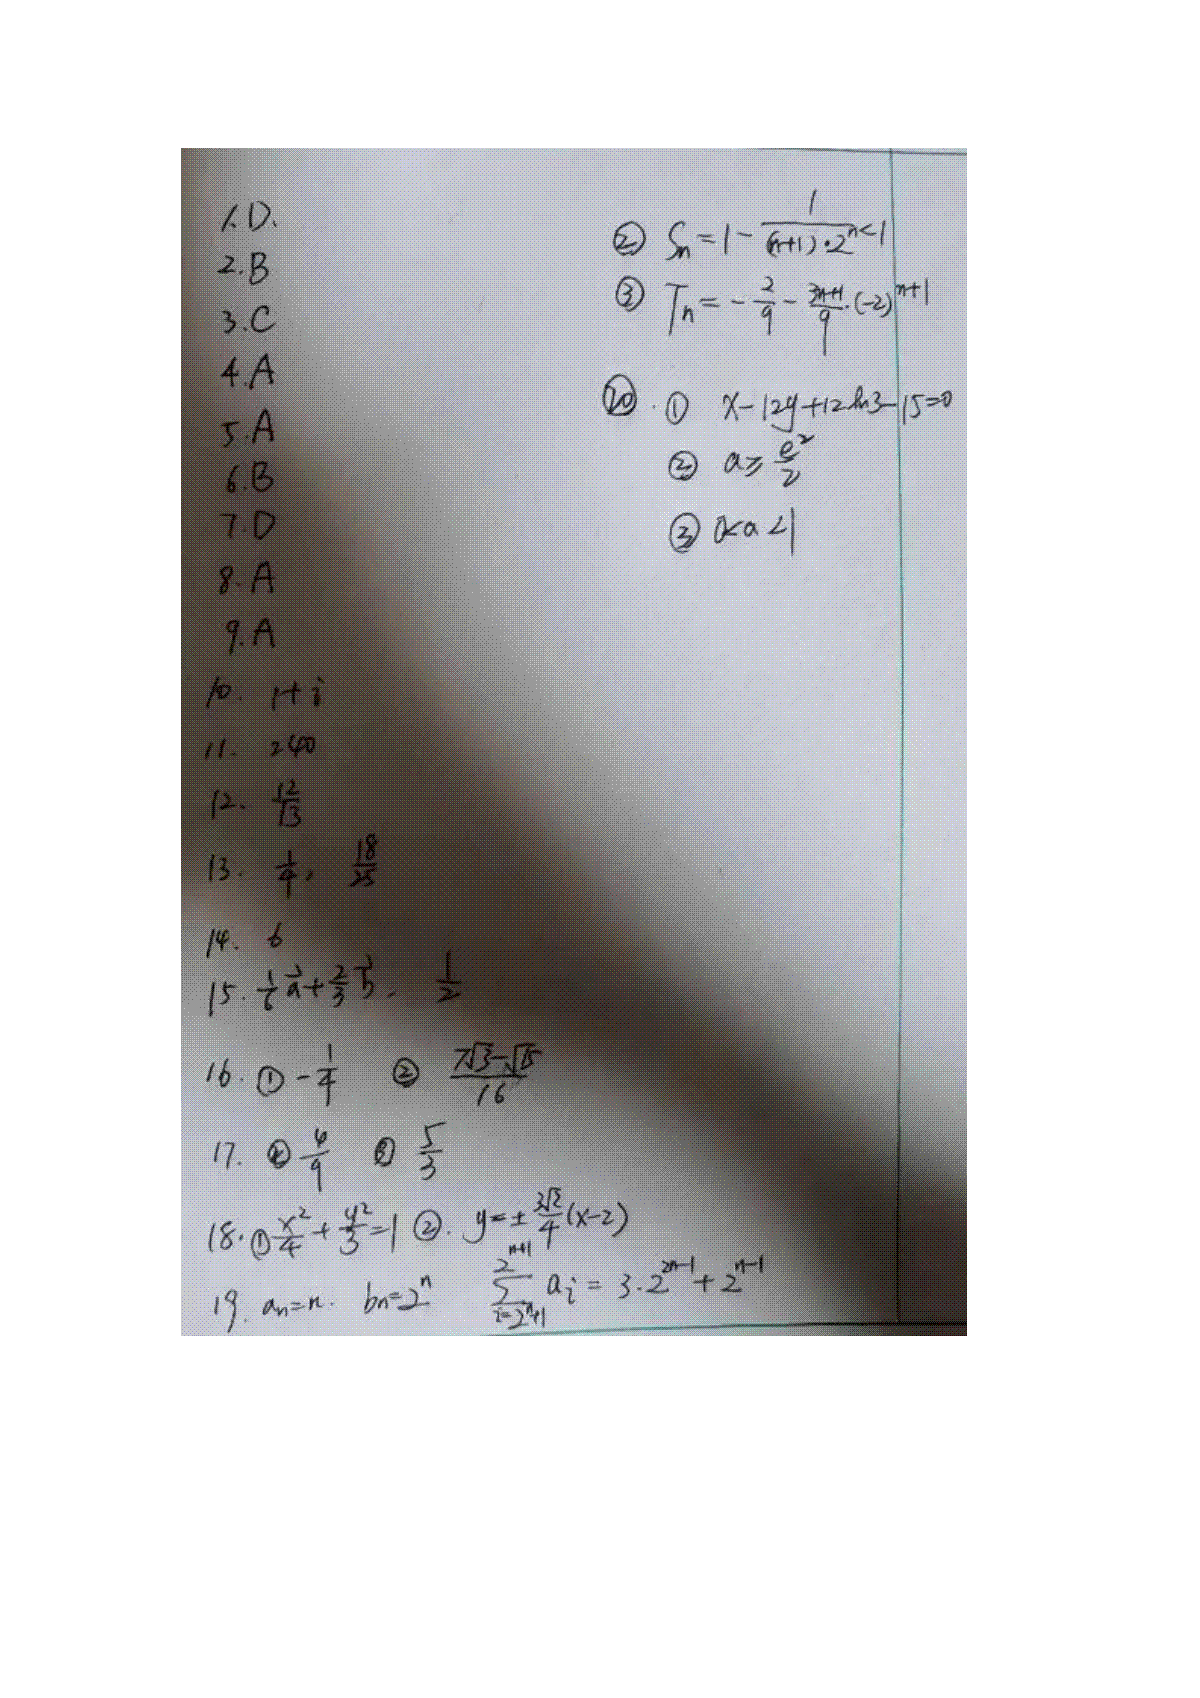 1.D.
2.B
3.C
4.A
5.A
6.B
7.D
8.A
9.A
10. 1+i
11. 240
12. 12/13
13. 1/4, 18/25
14. 6
15. 1/6 a⃗ + 2/3 b⃗, 1/2
16. ① -1/4 ② (7√3-√15)/16
17. ② 4/9 ③ 5/3
18. ① x²/4 + y²/3 = 1 ②. y = ± 3√2/4 (x-2)
19. aₙ=n. bₙ=2ⁿ ∑_{i=2ⁿ+1}^{2ⁿ⁺¹} aᵢ = 3·2²ⁿ⁻¹ + 2ⁿ⁻¹
② Sₙ = 1 - 1/((n+1)·2ⁿ) < 1
③ Tₙ = -2/9 - (3n+1)/9 ·(-2)ⁿ⁺¹
⑳. ① x-12y+12ln3-15=0
② a ≥ e²/2
③ 0<a<1